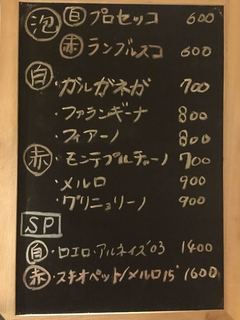 泡 白 プロセッコ 600
赤 ランブルスコ 600
白 ・ガルガネガ 700
・ファランギーナ 800
・フィアーノ 800
赤 ・モンテプルチャーノ 700
・メルロ 900
・グリニョリーノ 900
SP
白・ロエロ・アルネイズ'03 1400
赤・スキオペット/メルロ15' 1600